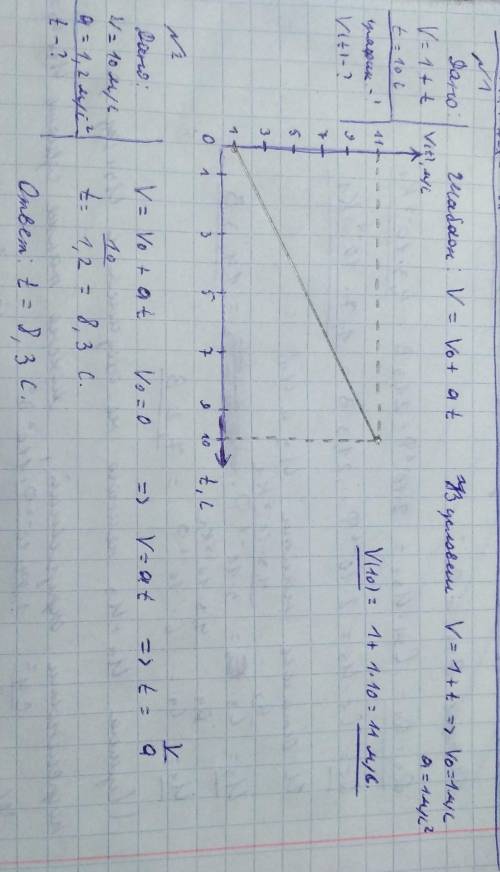 №1
Дано:
V = 1 + t
t = 10 с
график - ?
V(t) - ?
Шаблон: V = V₀ + at
Из условия: V = 1 + t => V₀ = 1 м/с
a = 1 м/с²
V(t), м/с
11
9
7
5
3
1
0 1 3 5 7 9 10 t, с
V(10) = 1 + 1·10 = 11 м/с.
№2
Дано:
V = 10 м/с
a = 1,2 м/с²
t - ?
V = V₀ + at V₀ = 0 => V = at => t = V/a
t = 10/1,2 = 8,3 с.
Ответ: t = 8,3 с.